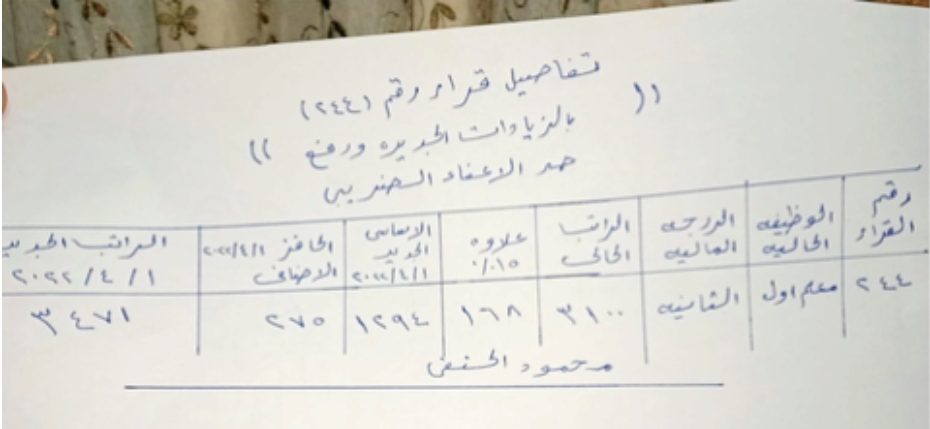 تفاصيل قرار رقم (٢٤٤)
(( بالزيادات الجديده ورفع ))
حد الاعفاء الضريبى
رقم القرار | الوظيفه الحاليه | الدرجه الماليه | الراتب الحالى | علاوه ١٥٪ | الاساسى الجديد ٢٠٢٢/٤/١ | الحافز ٢٠٢٢/٤/١ الاضافى | الراتب الجديد ٢٠٢٢/٤/١
٢٤٤ | معلم اول | الثانيه | ٣١٠٠ | ١٦٨ | ١٢٩٤ | ٢٧٥ | ٣٤٧١
محمود الحنفى